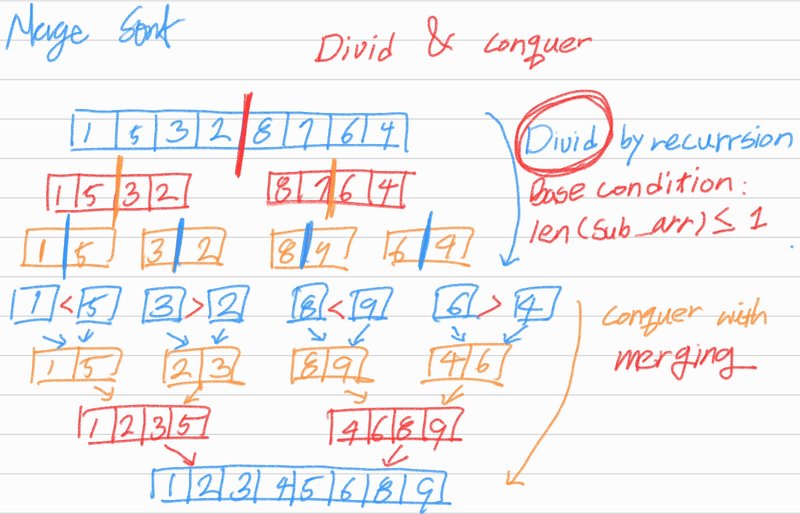 Merge Sort
Divid & conquer
1 5 3 2 8 7 6 4
Divid by recurrsion
1 5 3 2 8 7 6 4
Base condition:
len(sub_arr) ≤ 1
1 5 3 2 8 9 6 4
1 < 5 3 > 2 8 < 9 6 > 4
conquer with
merging
1 5 2 3 8 9 4 6
1 2 3 5 4 6 8 9
1 2 3 4 5 6 8 9